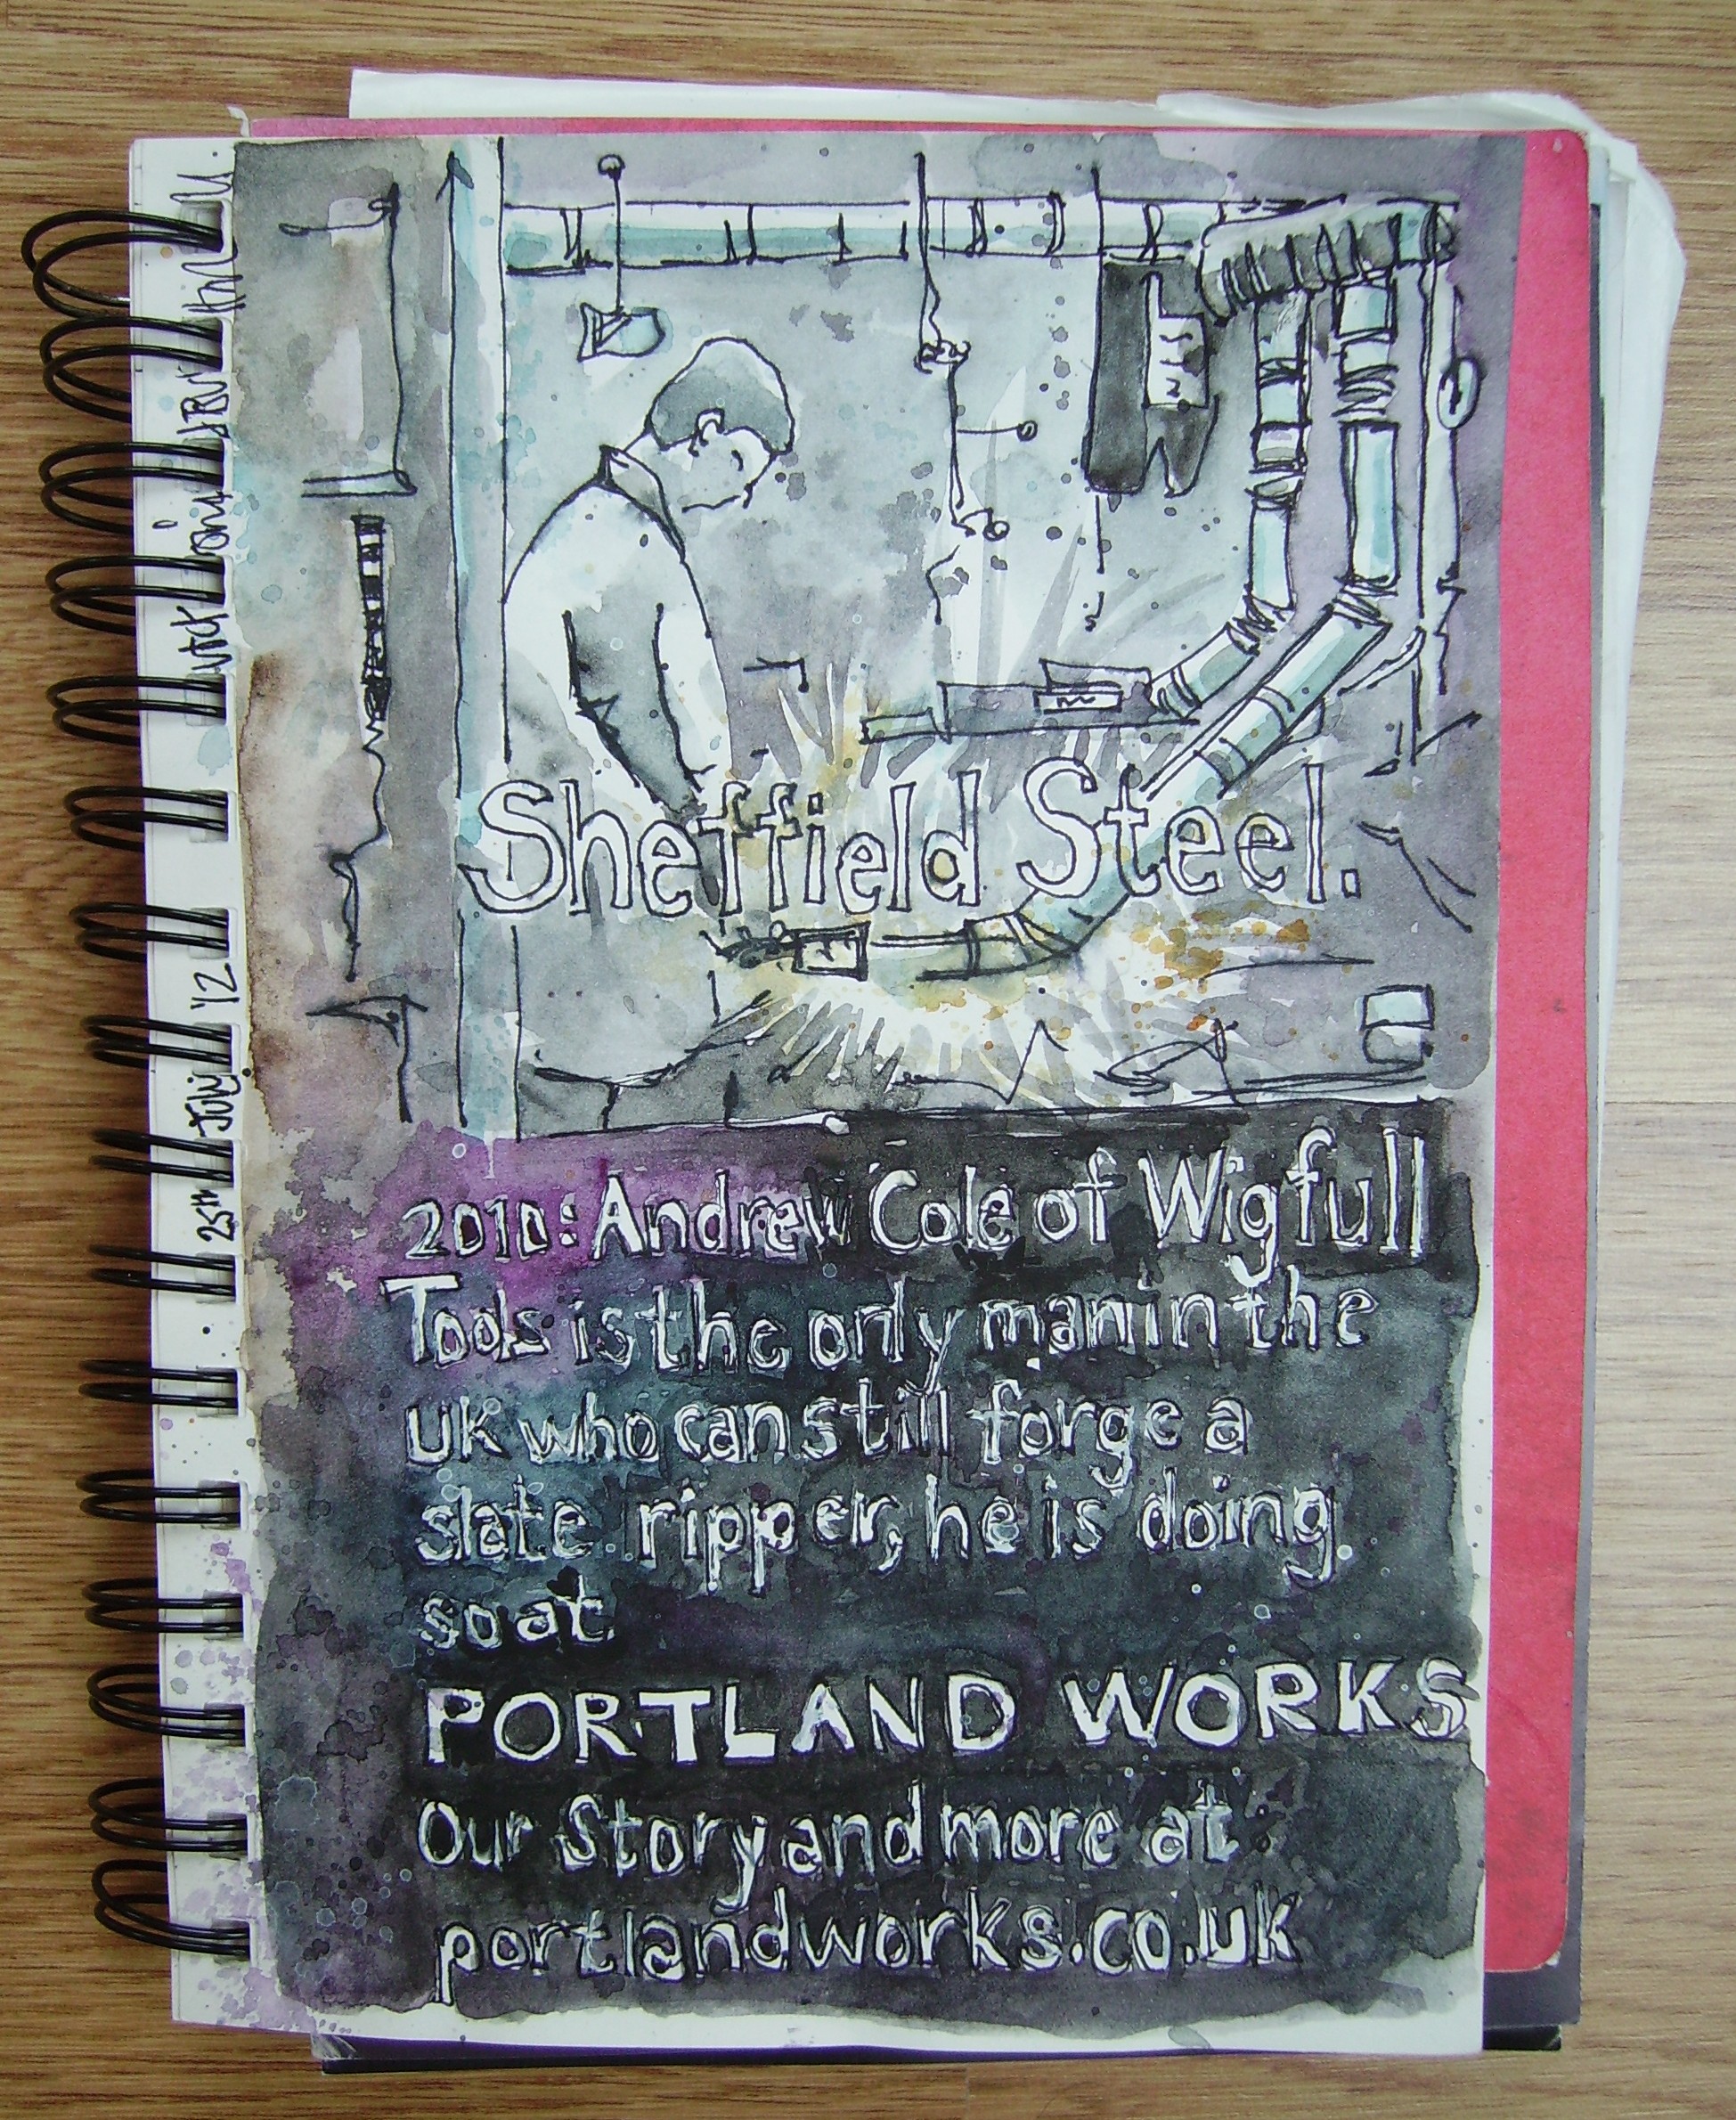 Sheffield Steel.
2010: Andrew Cole of Wigfull
Tools is the only man in the
UK who can still forge a
slate ripper, he is doing
so at
PORTLAND WORKS
Our Story and more at
portlandworks.co.uk
25th July '12